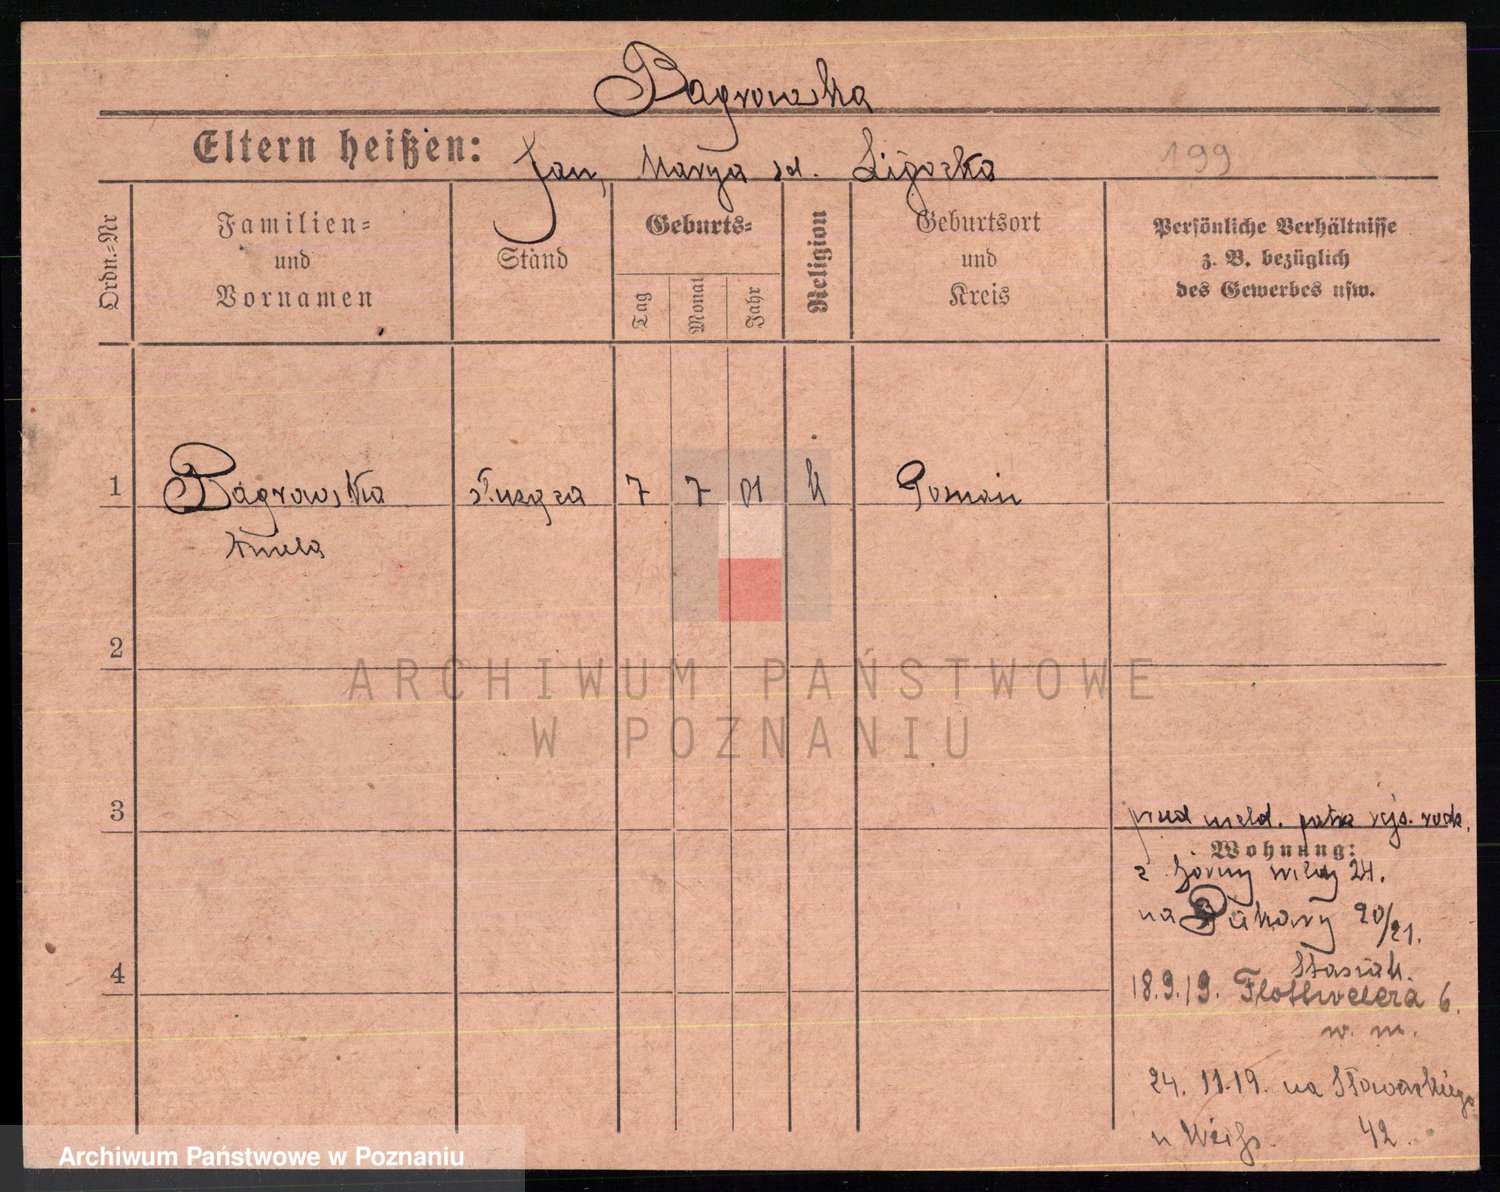 Bagrowska
Eltern heißen: Jan, Marya sd. Ligocka 199
Ordn.-Nr
Familien-
und
Vornamen
Stand
Geburts-
Tag
Monat
Jahr
Religion
Geburtsort
und
Kreis
Persönliche Verhältnisse
z. B. bezüglich
des Gewerbes usw.
1 Bagrowska służąca 7 7 01 k Poznań
Aniela
2
ARCHIWUM PAŃSTWOWE
W POZNANIU
3
przed meld. patrz rejs.
Wohnung:
z Górny Wildy 24.
na Piekary 20/21.
Stasiak.
4
18.9.19. Flottwelera 6.
w. m.
24. 11.19. na Słowackiego
u Weiß. 42.
Archiwum Państwowe w Poznaniu